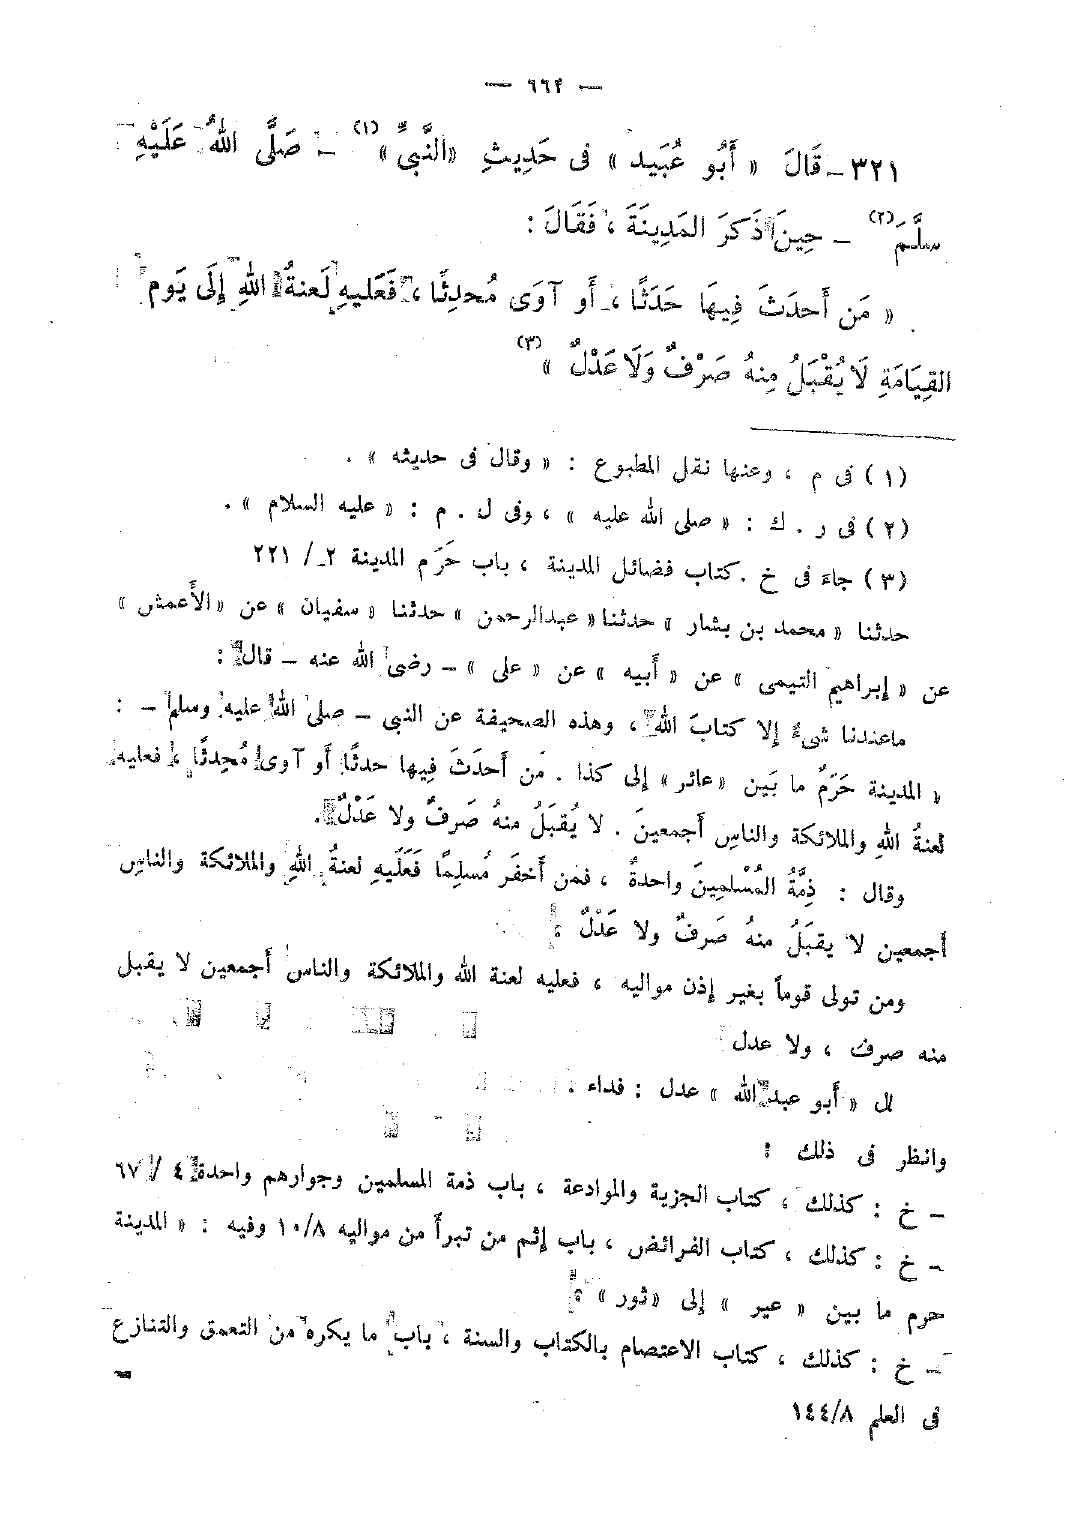 — ٦٦٢ —
٣٢١ـ قَالَ « أَبُو عُبَيد » فى حَدِيثِ «النَّبىِّ» (١) ـ صَلَّى اللهُ عَلَيْهِ
سلَّمَ (٢) ـ حِينَ ذَكَرَ المَدِينَةَ ، فَقَالَ :
« مَن أَحدَثَ فِيهَا حَدَثًا ، أَو آوَى مُحدِثًا ، فَعَليهِ لَعنةُ اللهِ إلَى يَوم
القِيَامَةِ لَا يُقْبَلُ مِنهُ صَرْفٌ وَلَا عَدْلٌ » (٣)
(١) فى م ، وعنها نقل المطبوع : « وقال فى حديثه » .
(٢) فى ر . ك : « صلى الله عليه » ، وفى ل . م : « عليه السلام » .
(٣) جاءَ فى خ . كتاب فضائل المدينة ، باب حَرَم المدينة ٢ـ/ ٢٢١
حدثنا « محمد بن بشار » حدثنا « عبدالرحمن » حدثنا « سفيان » عن « الأَعمش »
عن « إبراهيم التيمى » عن « أَبيه » عن « على » ـ رضى الله عنه ـ قال :
ماعندنا شىءٌ إلا كتابَ الله ، وهذه الصحيفة عن النبى ـ صلى الله عليه وسلم ـ :
« المدينة حَرَمٌ ما بَين «عائر» إلى كذا . مَن أَحدَثَ فِيها حدثًا أَو آوى مُحدِثًا ، فعليه
لعنةُ اللهِ والملائكة والناسِ أَجمعينَ . لا يُقبَلُ منهُ صَرفٌ ولا عَدْلٌ .
وقال : ذِمَّةُ المُسْلمِينَ واحدةٌ ، فمن أَخفَر مُسلِمًا فَعَلَيهِ لعنةُ اللهِ والملائكة والناسِ
أَجمعين لا يقبَلُ منهُ صَرفٌ ولا عَدْلٌ :
ومن تولى قوماً بغير إذن مواليه ، فعليه لعنة الله والملائكة والناس أَجمعين لا يقبل
منه صرف ، ولا عدل
ال « أَبو عبد الله » عدل : فداء .
وانظر فى ذلك :
ـ خ : كذلك ، كتاب الجزية والموادعة ، باب ذمة المسلمين وجوارهم واحدة ٤ / ٦٧
ـ خ : كذلك ، كتاب الفرائض ، باب إثم من تبرأَ من مواليه ١٠/٨ وفيه : « المدينة
حرم ما بين « عير » إلى «ثور» :
ـ خ : كذلك ، كتاب الاعتصام بالكتاب والسنة ، باب ما يكره من التعمق والتنازع
فى العلم ١٤٤/٨